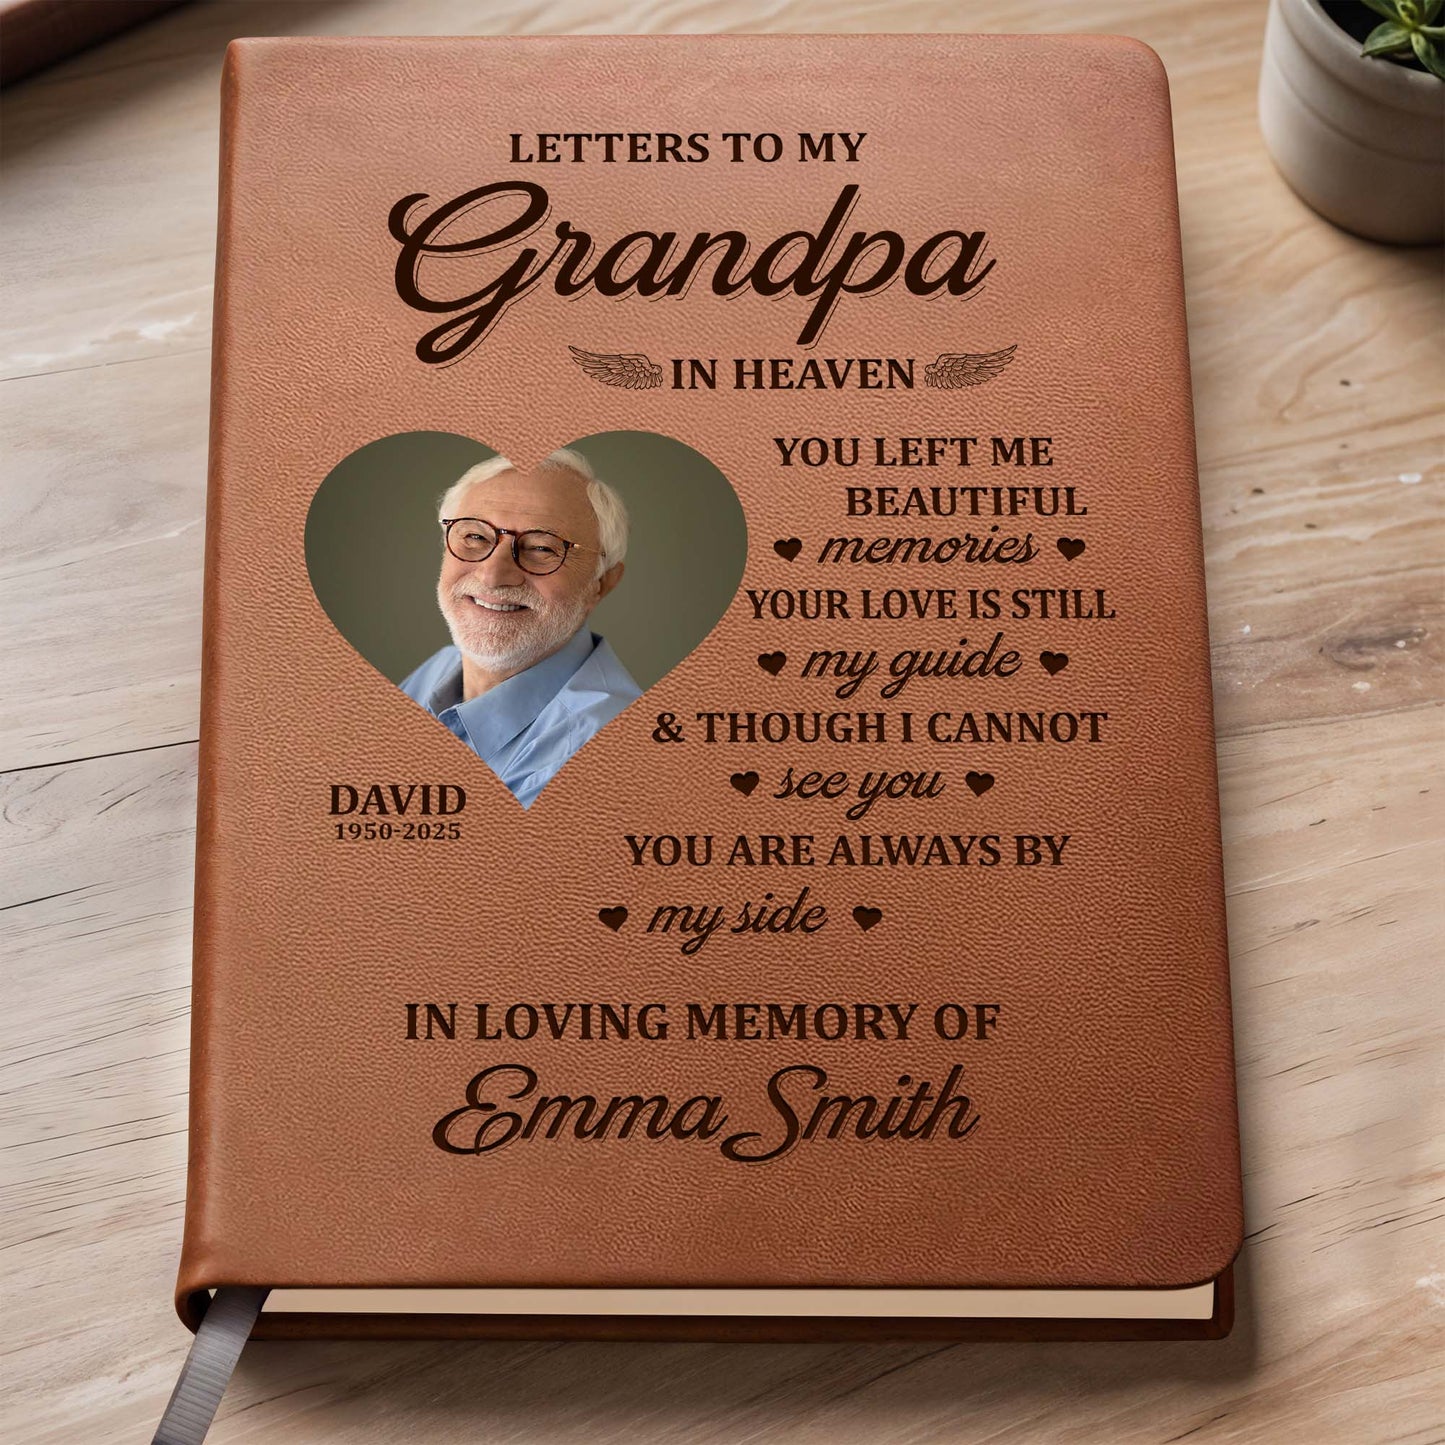 LETTERS TO MY
Grandpa
IN HEAVEN
YOU LEFT ME
BEAUTIFUL
memories
YOUR LOVE IS STILL
my guide
& THOUGH I CANNOT
see you
YOU ARE ALWAYS BY
my side
DAVID
1950-2025
IN LOVING MEMORY OF
Emma Smith